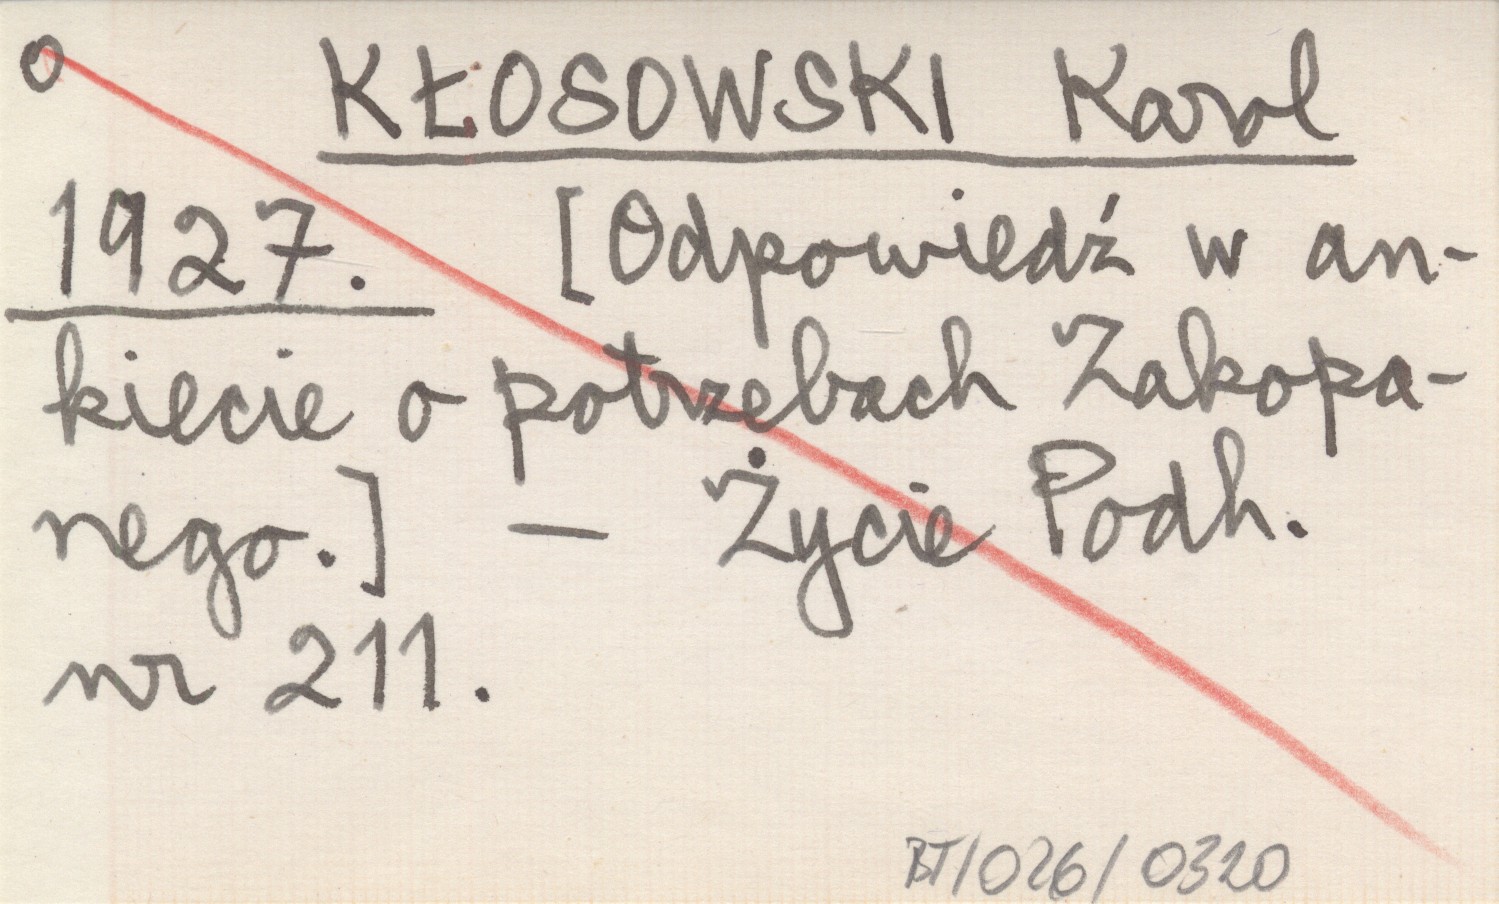 o KŁOSOWSKI Karol
1927. [Odpowiedź w an-
kiecie o potrzebach Zakopa-
nego.] — Życie Podh.
nr 211.
BT/026/0320